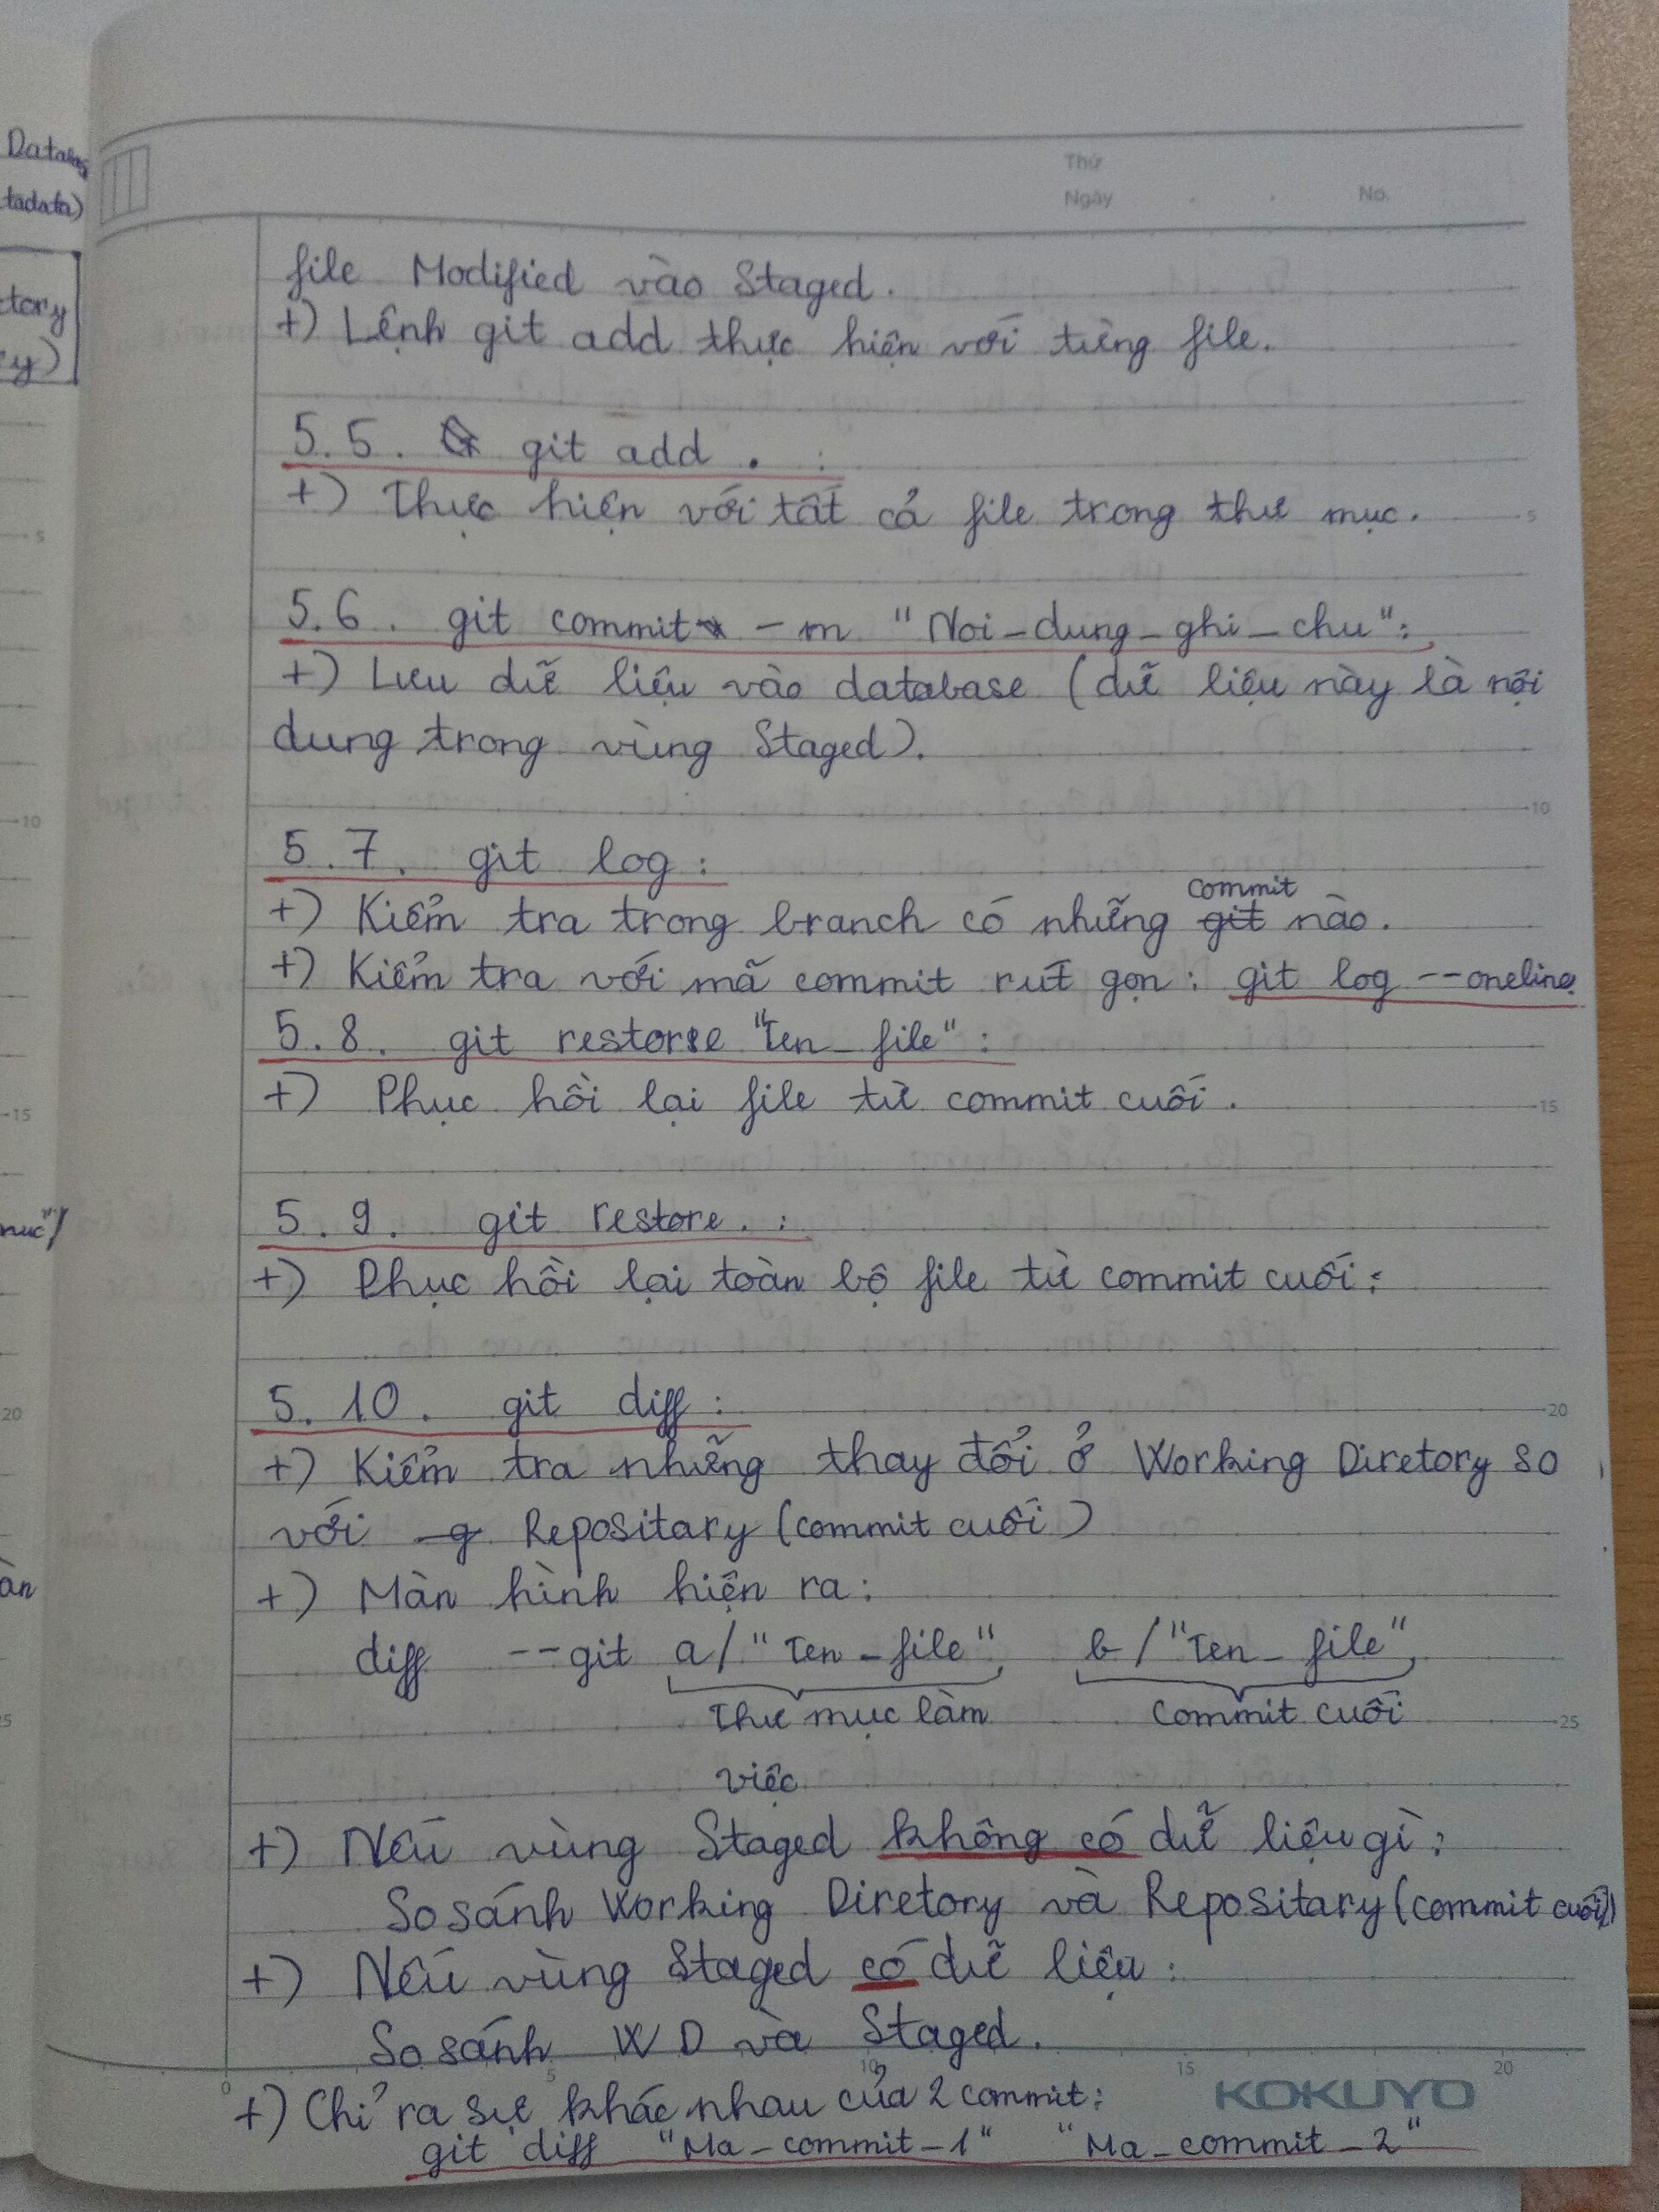 Databas
tadata)
ctory
ry)
nuc"/
àn
Thứ
Ngày
No.
file Modified vào Staged.
+) Lệnh git add thực hiện với từng file.
5.5. git add . :
+) Thực hiện với tất cả file trong thư mục.
5.6. git commit -m "Noi_dung_ghi_chu":
+) Lưu dữ liệu vào database (dữ liệu này là nội
dung trong vùng Staged).
5.7. git log :
+) Kiểm tra trong branch có những commit nào.
+) Kiểm tra với mã commit rút gọn : git log --oneline
5.8. git restore "Ten_file" :
+) Phục hồi lại file từ commit cuối.
5.9. git restore. :
+) Phục hồi lại toàn bộ file từ commit cuối :
5.10. git diff :
+) Kiểm tra những thay đổi ở Working Diretory so
với Repositary (commit cuối)
+) Màn hình hiện ra :
diff --git a/"Ten_file" b/"Ten_file"
Thư mục làm commit cuối
việc
+) Nếu vùng Staged không có dữ liệu gì :
So sánh Working Diretory và Repositary (commit cuối)
+) Nếu vùng Staged có dữ liệu :
So sánh WD và Staged.
0 5 10 15 20
KOKUYO
+) Chỉ ra sự khác nhau của 2 commit :
git diff "Ma_commit_1" "Ma_commit_2"